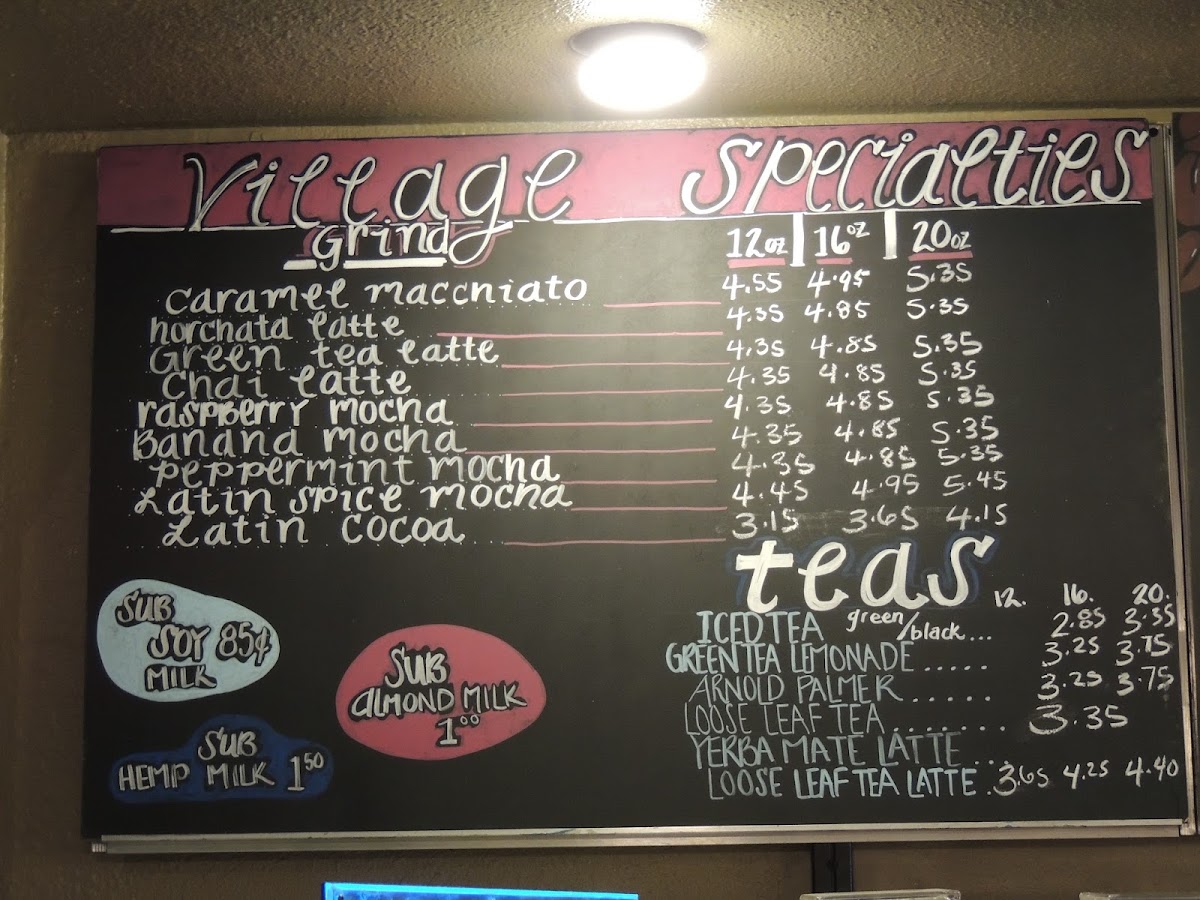 Village Specialties
Grind
12oz | 16oz | 20oz
Caramel macchiato 4.55 4.95 5.35
horchata latte 4.35 4.85 5.35
Green tea latte 4.35 4.85 5.35
Chai latte 4.35 4.85 5.35
raspberry mocha 4.35 4.85 5.35
Banana mocha 4.35 4.85 5.35
peppermint mocha 4.35 4.85 5.35
Latin spice mocha 4.45 4.95 5.45
Latin cocoa 3.15 3.65 4.15
SUB
SOY 85¢
MILK
SUB
ALMOND MILK
1.00
SUB
HEMP MILK 1.50
teas
12. 16. 20.
ICED TEA green/black... 2.85 3.35
GREEN TEA LEMONADE..... 3.25 3.75
ARNOLD PALMER...... 3.25 3.75
LOOSE LEAF TEA....... 3.35
YERBA MATE LATTE ...
LOOSE LEAF TEA LATTE .3.65 4.25 4.40